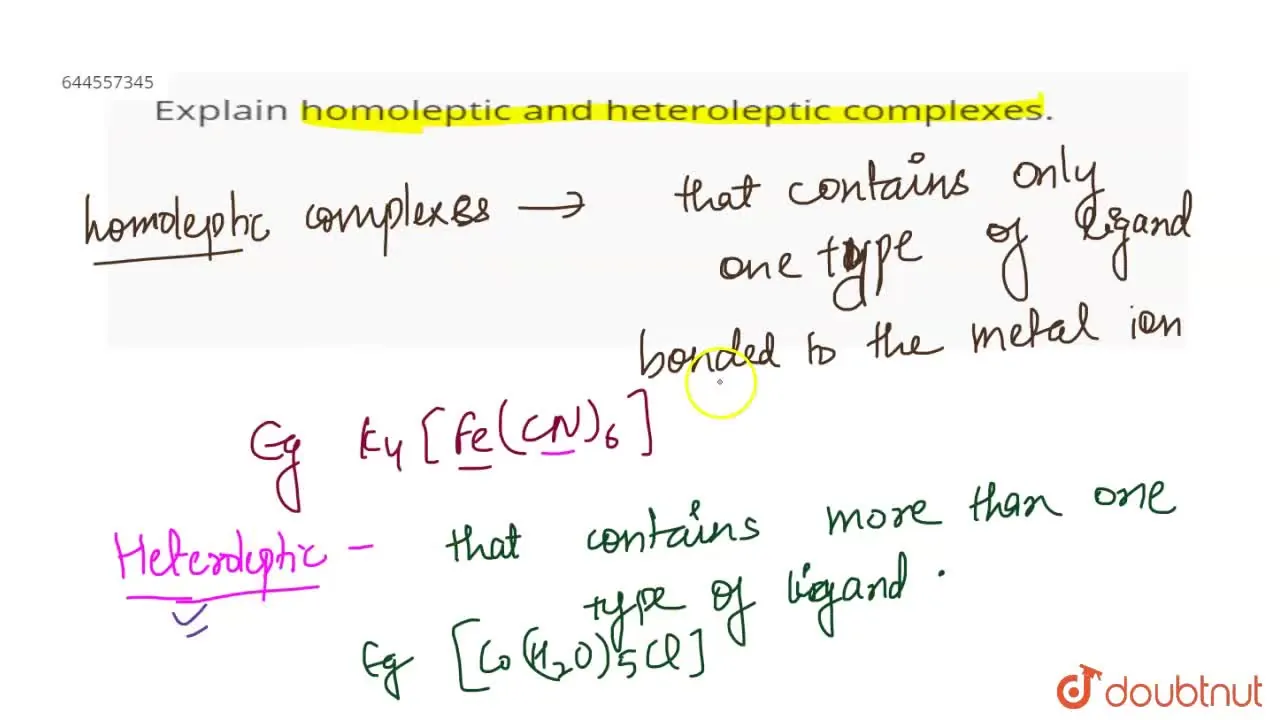 644557345
Explain homoleptic and heteroleptic complexes.
homoleptic complexes → that contains only
one type of ligand
bonded to the metal ion
Eg K4[Fe(CN)6]
Heteroleptic - that contains more than one
type of ligand.
Eg [Co(H2O)5Cl]
doubtnut